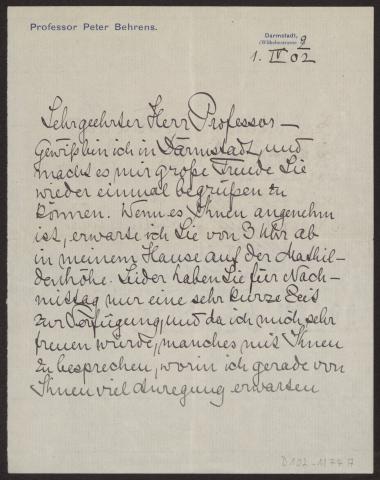 Professor Peter Behrens.
Darmstadt,
(Wilhelmstrasse 9
1. IV 02
Sehrgeehrter Herr Professor –
Gewiß bin ich in Darmstadt und
macht es mir große Freude Sie
wieder einmal begrüßen zu
können. Wenn es Ihnen angenehm
ist, erwarte ich Sie von 3 Uhr ab
in meinem Hause auf der Mathil-
denhöhe. Leider haben Sie für Nach-
mittag nur eine sehr kurze Zeit
zur Verfügung, und da ich mich sehr
freuen würde, manches mit Ihnen
zu besprechen, worin ich gerade von
Ihnen viel Anregung erwarten